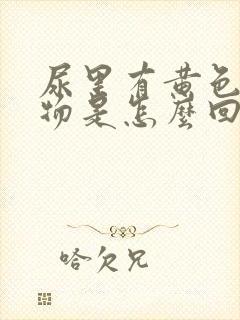 尿里有黄色
物是怎麽回
哈欠兄